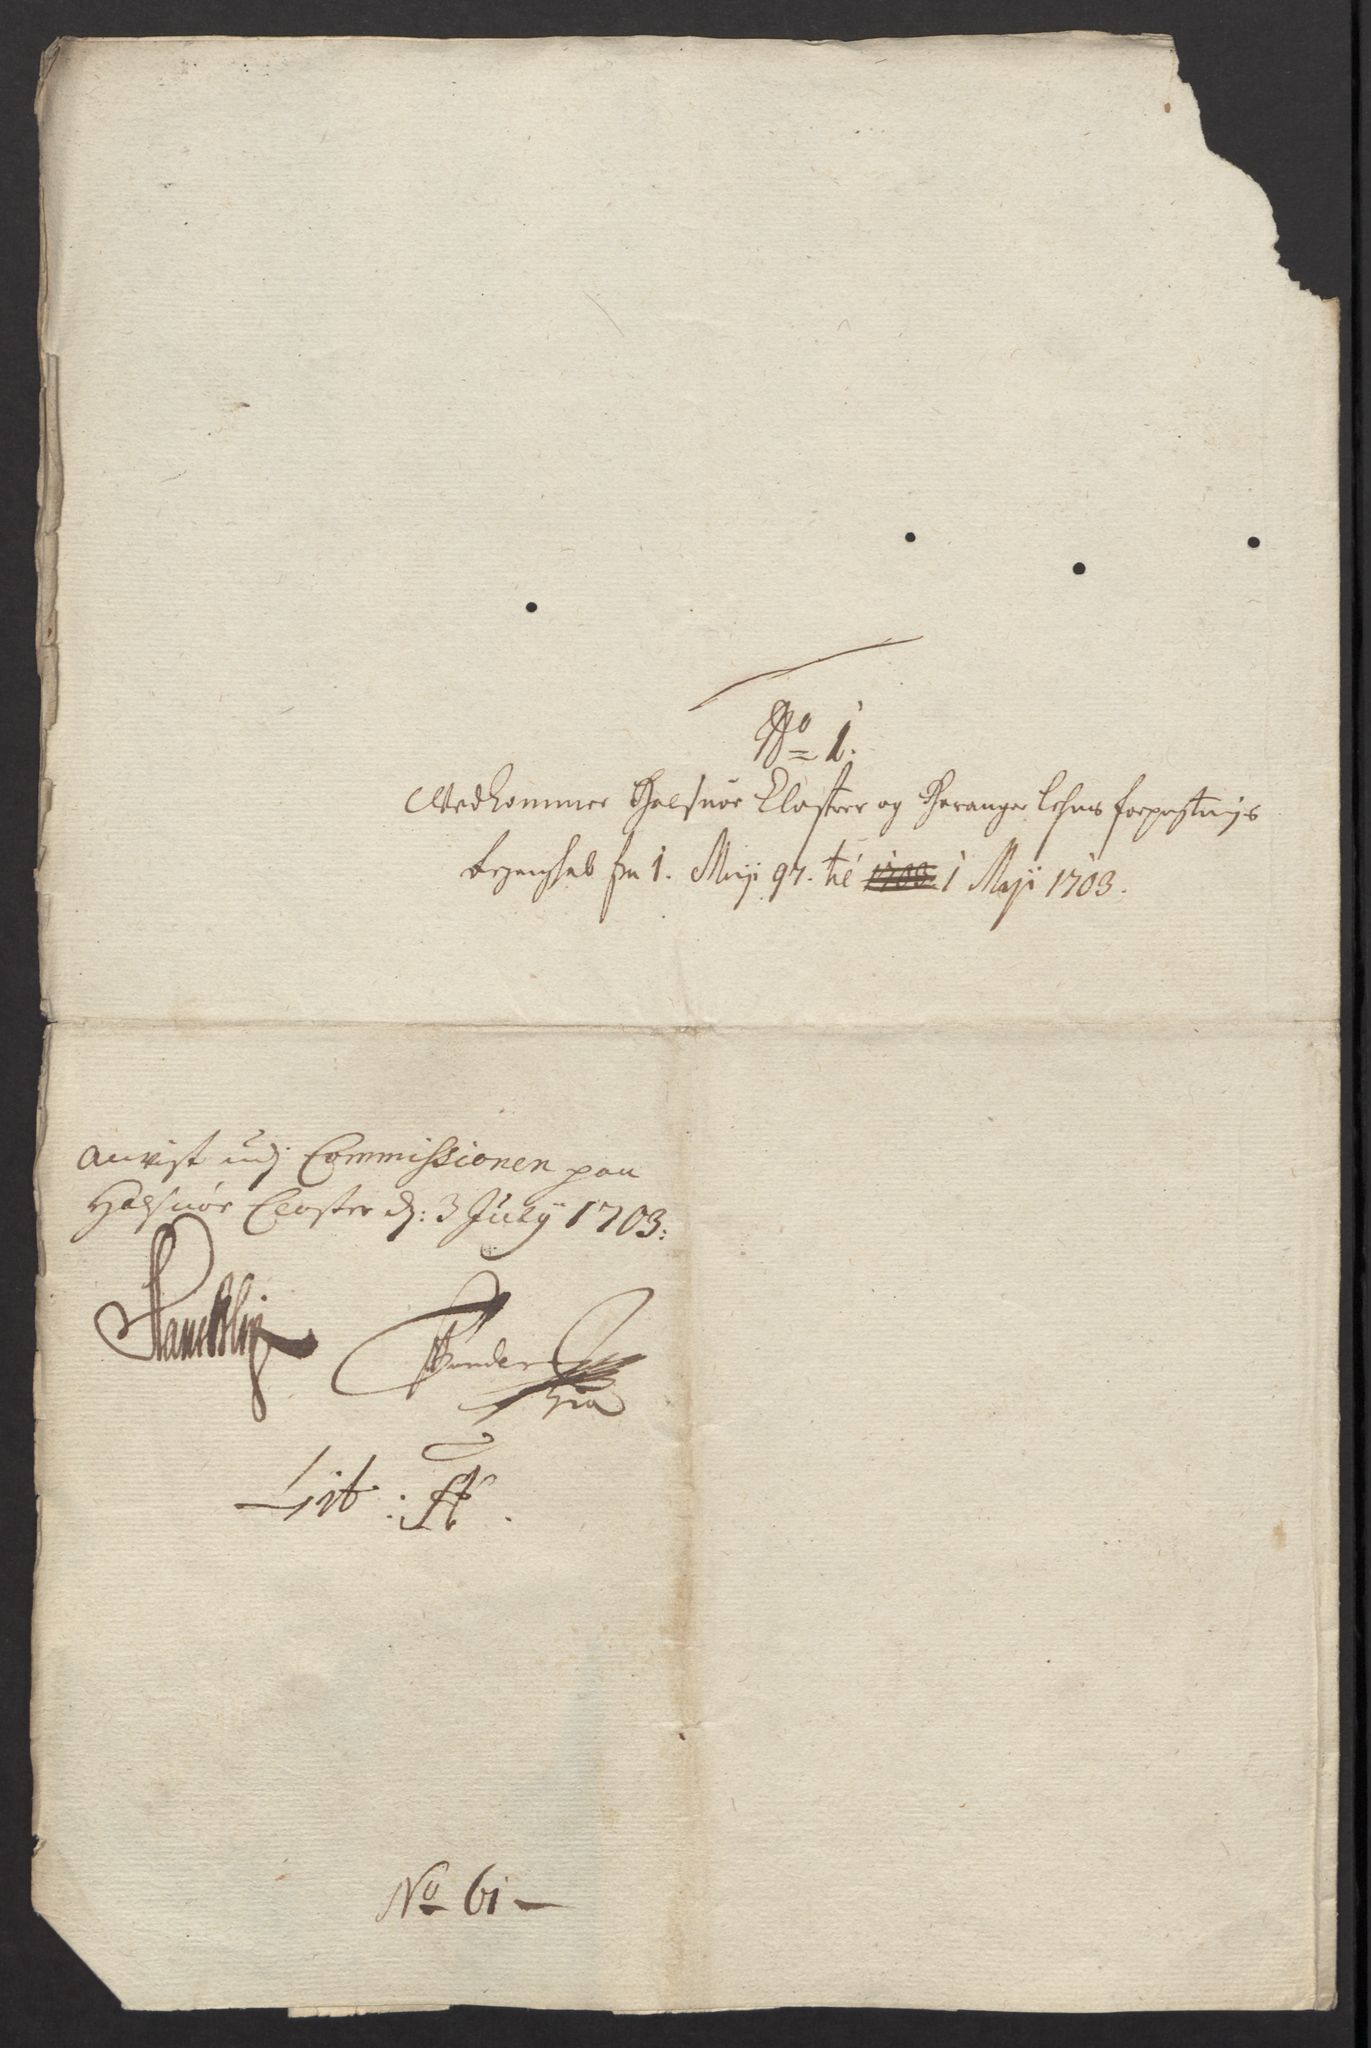 No 1.
Vedkommer Halsnöe Closter og Haranger Lehns forpagtnings
Regenskab fra 1. Maji 97. til 1703. 1 Maji 1703.
anvist udj Commissionen paa
Halsnöe Closter d: 3 July 1703:
Lit: A.
No 61